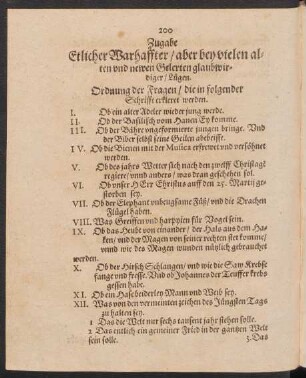 200
Zugabe
Etlicher Warhaffter / aber bey vielen al-
ten vnd newen Gelerten glaubwir-
diger / Lügen.
Ordnung der Fragen / die in folgender
Schrifft erkleret werden.
I. Ob ein alter Adeler wieder jung werde.
II. Ob der Basilisch vom Hanen Ey komme.
III. Ob der Bähre vngeformierte jungen bringe. Vnd
der Biber selbst seine Geilen abbeisse.
IV. Ob die Bienen mit der Musica erfrewet vnd versöhnet
werden.
V. Ob des jahrs Wetter sich nach den zwelff Christtagē
regiere / vnnd anders / was dran geschehen sol.
VI. Ob vnser HErr Christus auff den 25. Martij ge-
storben sey.
VII. Ob der Elephant vnbeugsame Füß / vnd die Drachen
Flügel haben.
VIII. Was Greiffen vnd harpyien für Vögel sein.
IX. Ob das Heubt von einander / der Hals aus dem Ha-
ken / vnd der Magen von seiner rechten stet komme /
vnnd wie des Magen wunden nützlich gebrauchet
werden.
X. Ob der Hirsch Schlangen / vnd wie die Saw Krebse
fange vnd fresse. Vnd ob Johannes der Teuffer krebs
gessen habe.
XI. Ob ein Hase beiderley Mann vnd Weib sey.
XII. Was von den vermeinten zeichen des Jüngsten Tags
zu halten sey.
1 Das die Welt nur sechs tausent jahr stehen solle.
2 Das entlich ein gemeiner Fried in der gantzen Welt
sein solle.
3. Das